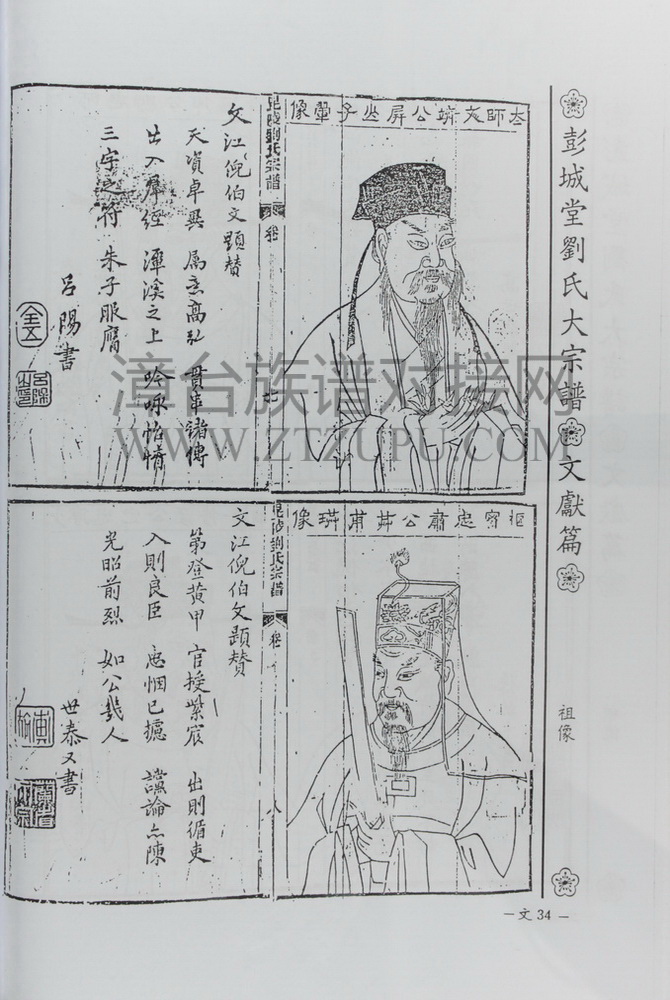 彭城堂劉氏大宗譜
文獻篇
祖像
太師文靖公屏山子翬像
劉氏宗譜
文江倪伯文題贊
天資卓異 屬意高弘 貫串諸傳
出入群經 潭溪之上 吟咏怡情
三字之符 朱子服膺
呂陽書
樞密忠肅公共甫珙像
劉氏宗譜
八
文江倪伯文題贊
第登黃甲 官授紫宸 出則循吏
入則良臣 忠悃已攄 讜論亦陳
光昭前烈 如公幾人
世泰又書
漳台族谱对接网
WWW.ZTZUPU.COM
— 文 34 —